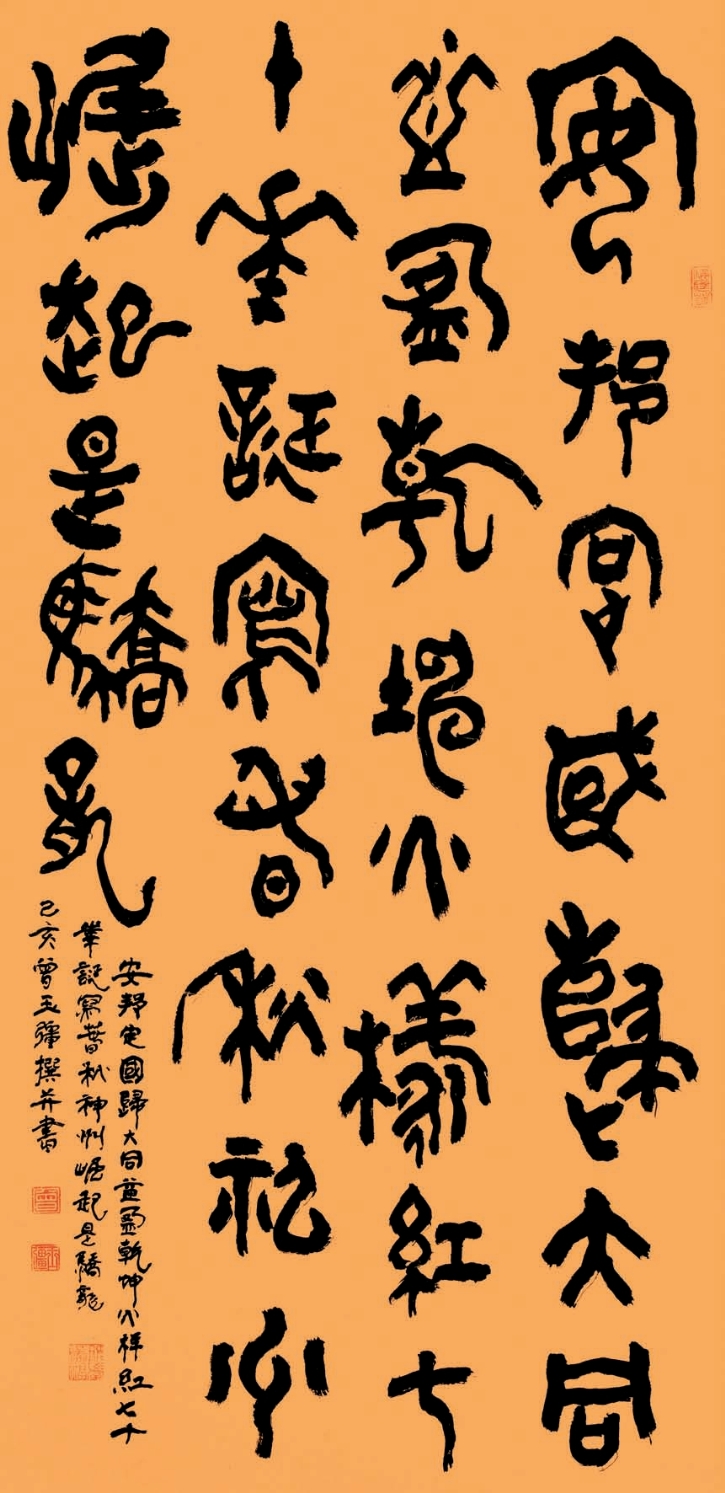 安邦定國歸大同
益盈乾坤火樣紅七
十華誕寫春秋神州
崛起是驕龍
安邦定國歸大同益盈乾坤火样紅七十
華誕寫春秋神州崛起是驕龍
己亥曾玉強撰并書